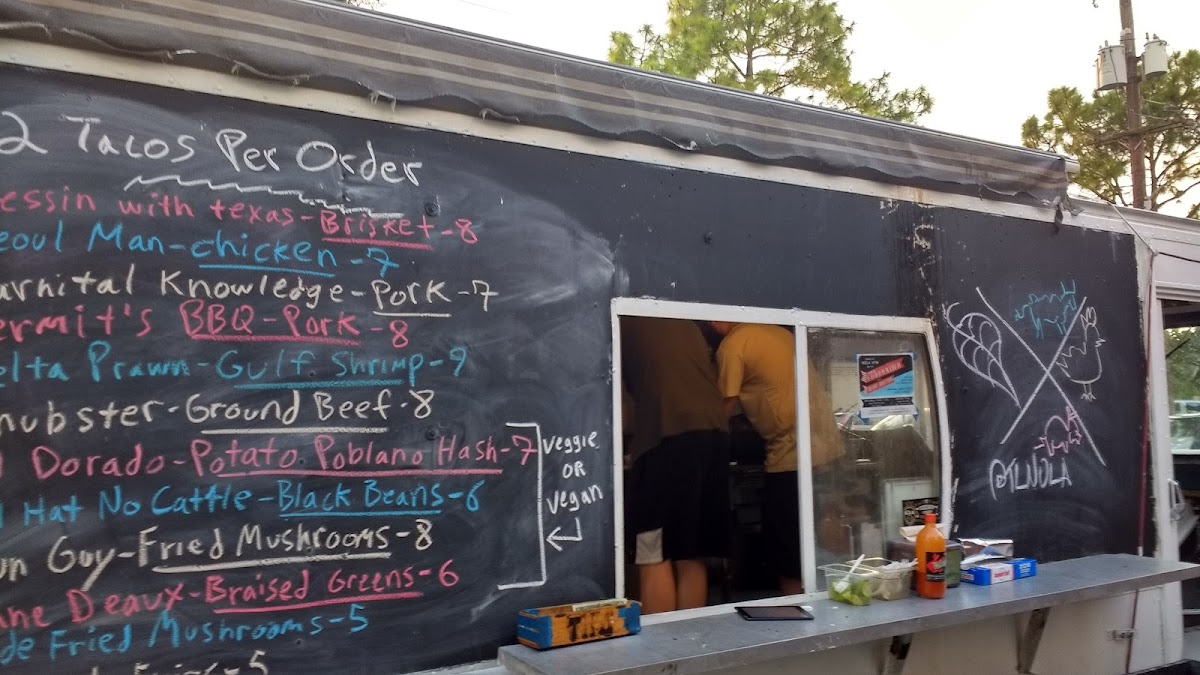 2 Tacos Per Order
essin with texas-Brisket-8
eoul Man-chicken-7
arnital Knowledge-Pork-7
ermit's BBQ-Pork-8
elta Prawn-Gulf Shrimp-9
hubster-Ground Beef-8
Dorado-Potato Poblano Hash-7
Hat No Cattle-Black Beans-6
un Guy-Fried Mushrooms-8
ane Deaux-Braised Greens-6
de Fried Mushrooms-5
Fries-5
veggie
OR
vegan
@TLNOLA
TIPS